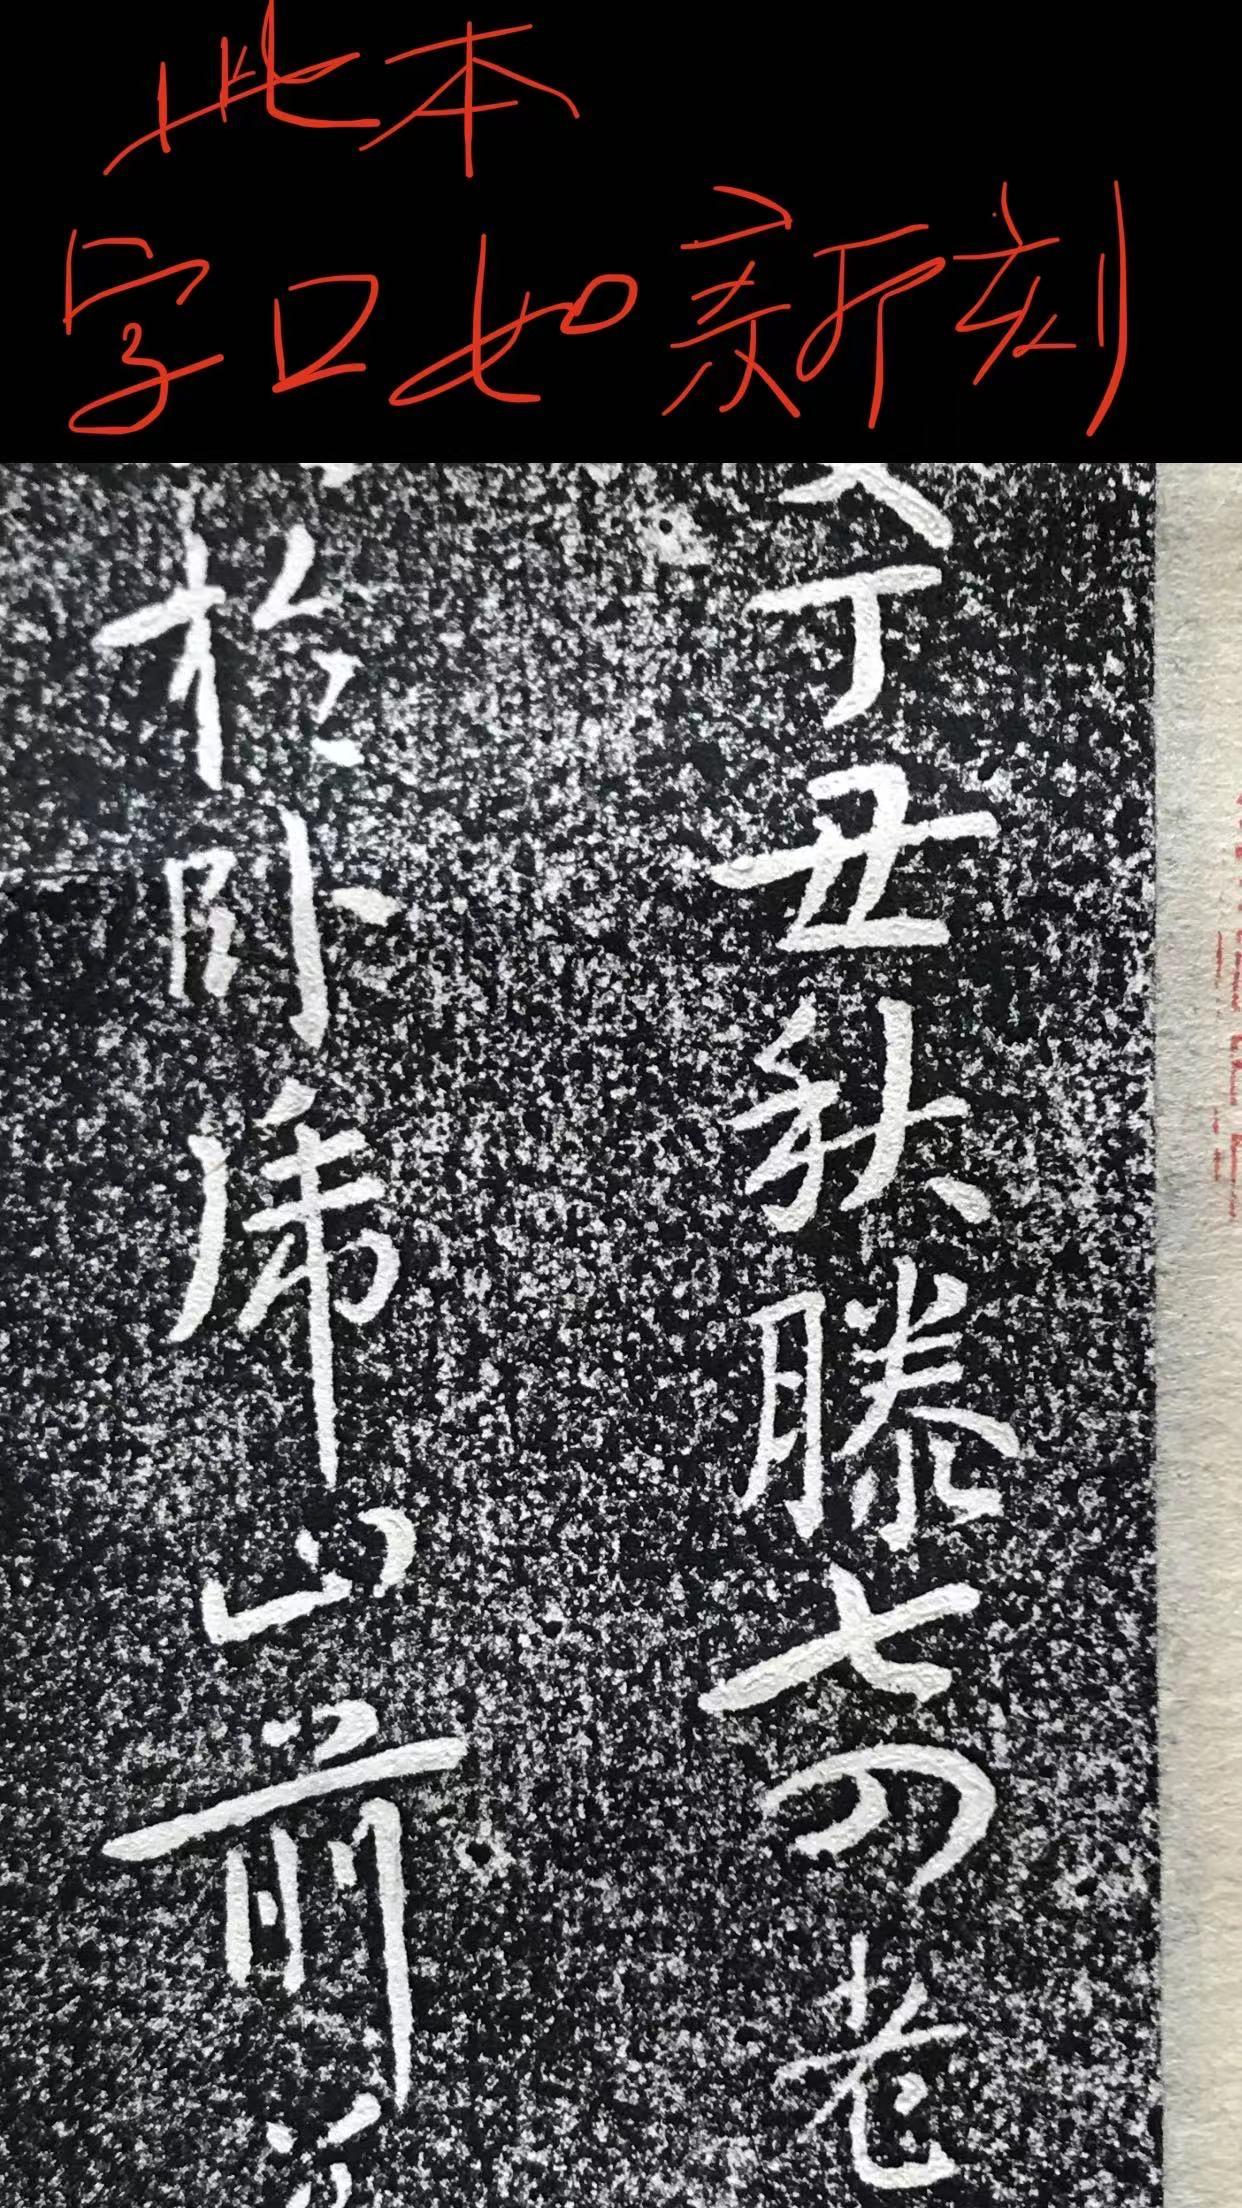 此本
字口如新刻
丁丑秋滕七老
於卧虎山前